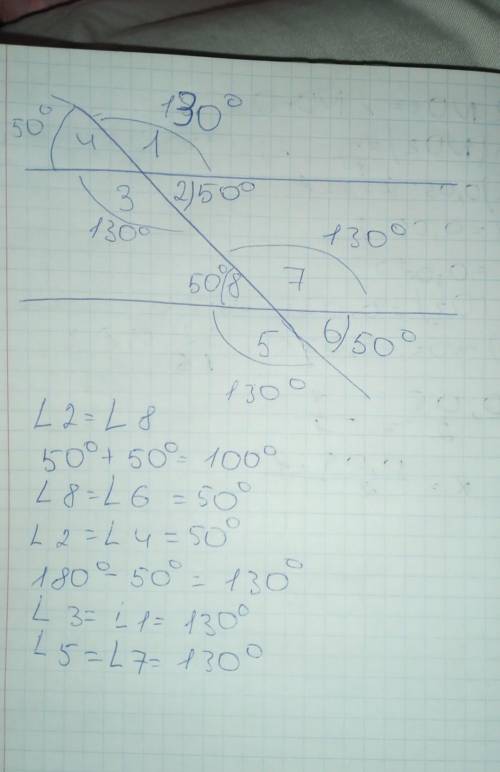 130°
50° 4 1
3 2) 50°
130° 130°
50° 8 7
5 6) 50°
130°
∠2 = ∠8
50° + 50° = 100°
∠8 = ∠6 = 50°
∠2 = ∠4 = 50°
180° - 50° = 130°
∠3 = ∠1 = 130°
∠5 = ∠7 = 130°